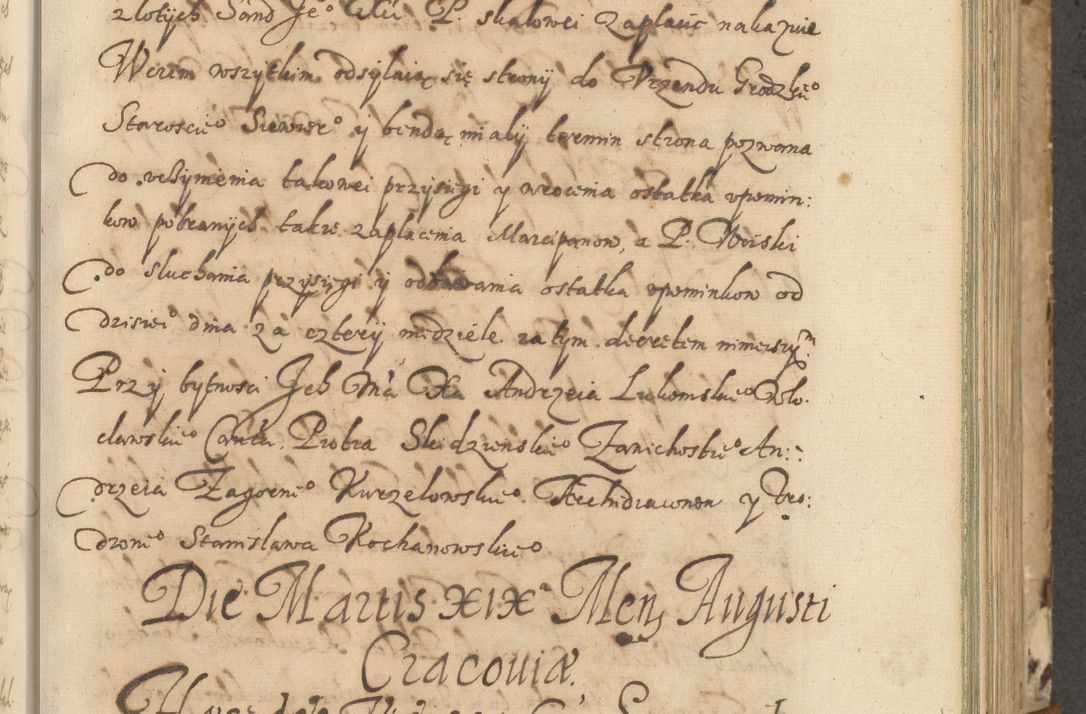 złotych Sąnd Je° P. skalowei zapłacić nakazuie
Wczem wszytkim odsylaią się strony do Vrzendu Grodzkie°
Staroscie° Siewier° y bendą miały termin strona pozwana
do vczynienia takowei przysięgi y wrocenia ostatka vpomin:
kow pobranych także zapłacenia Marcipanow, a P. Woiski
do słuchania przysięgi y odbierania ostatka vpominkow od
dzisiei° dnia za cztery niedziele. za tym decretem ninieiszym
Przy bytności Jch Mći Xa Andrzeia Lukomskie° Wło-
cławskie° Piotra Slidzienskie° Zawichostkie° An:
drzeia Zagornie° Kurzelowskie° Archidiaconow y Vro:
dzone° Stanisława Kochanowskie°
Die Martis XIXa Mens Augusti
Cracouiæ.